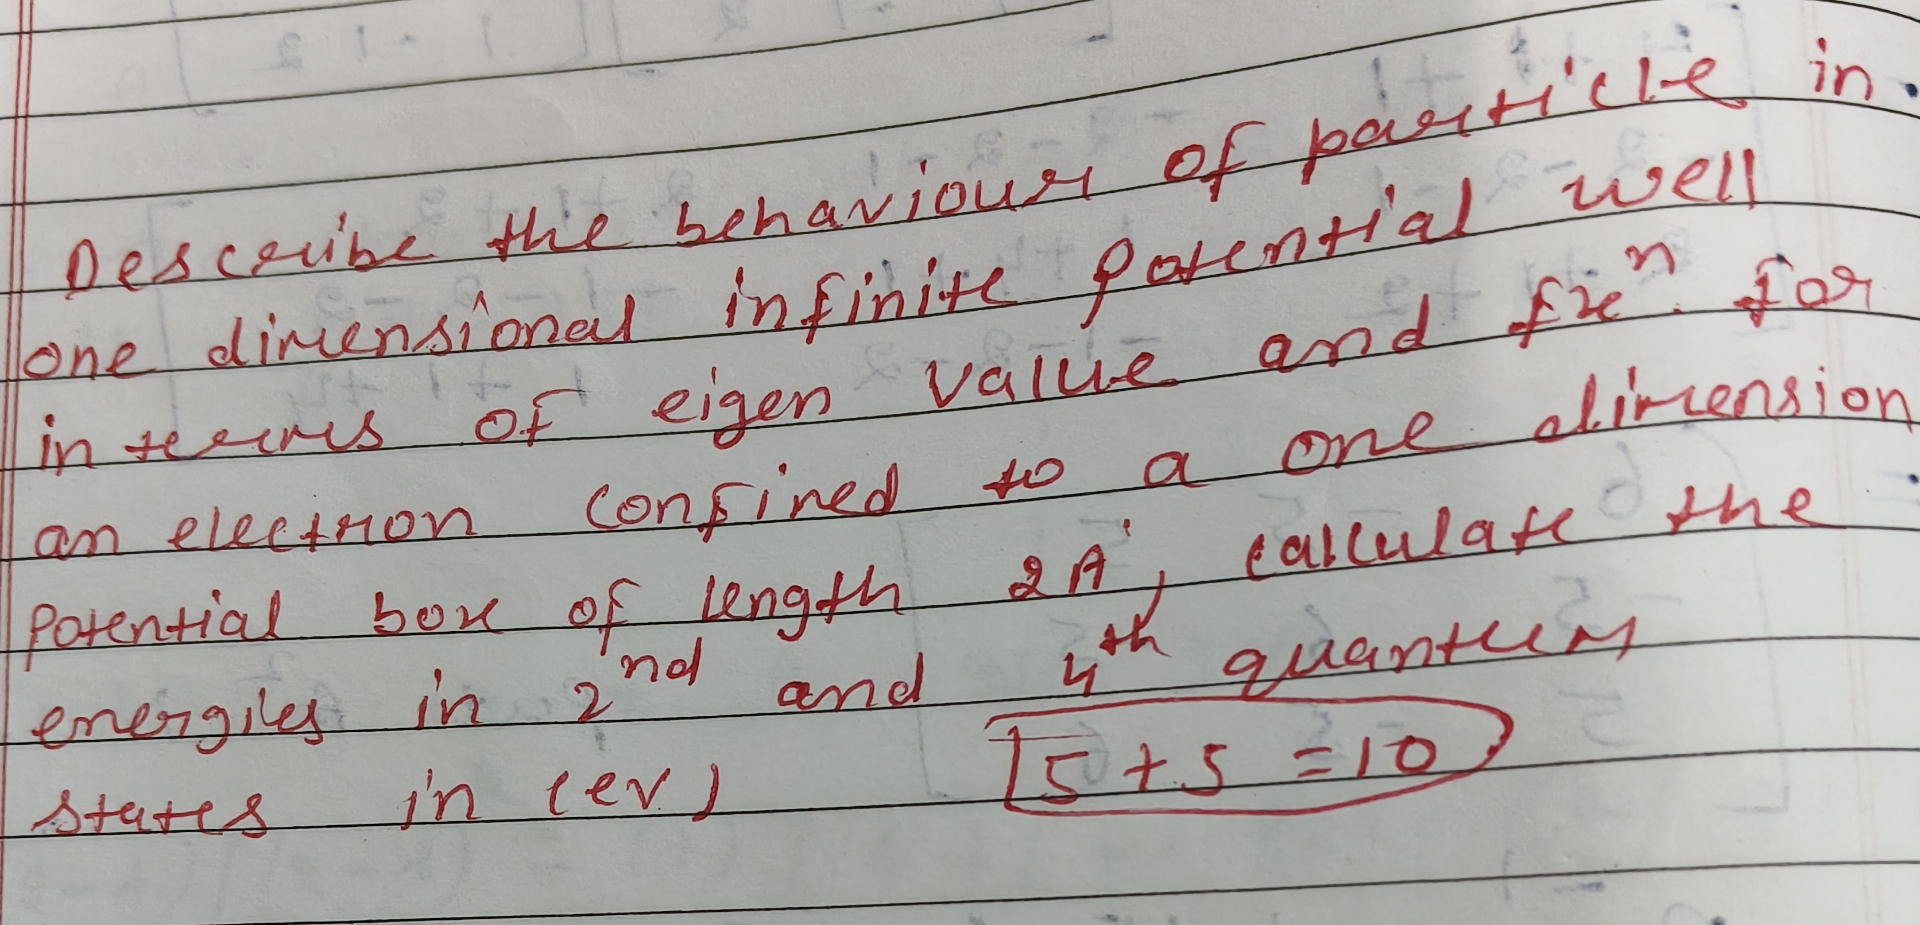 Describe the behaviour of particle in
one dimensional infinite potential well
in terms of eigen value and fxⁿ. for
an electron confined to a one dimension
potential box of length 2A°, calculate the
energies in 2nd and 4th quantum
states in (ev) 5+5=10